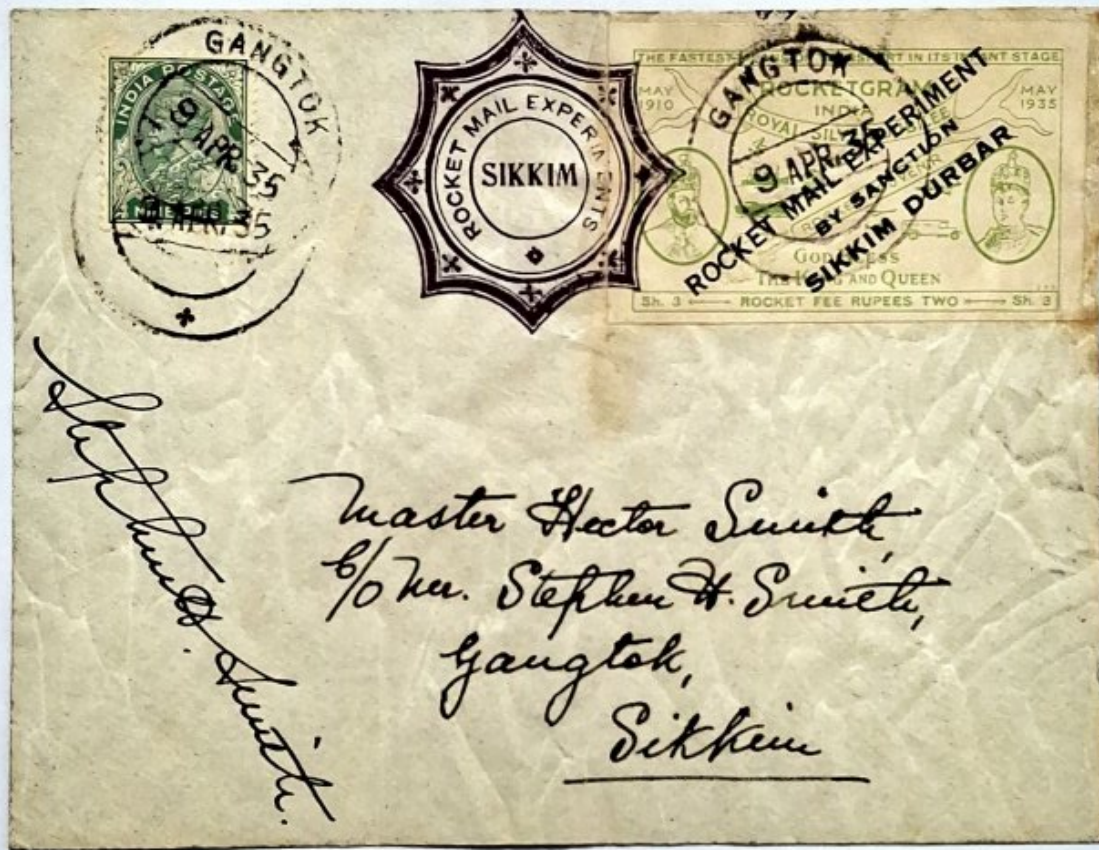 GANGTOK
INDIA POSTAGE
9 APR. 35
9 APR. 35
ROCKET MAIL EXPERIMENTS
SIKKIM
THE FASTEST
IN ITS
STAGE
ROCKETGRAM
MAY 1910
INDIA
MAY 1935
ROYAL
GANGTOK
9 APR. 35
ROCKET MAIL EXPERIMENT
BY SANCTION
SIKKIM DURBAR
THE KING AND QUEEN
Sh. 3 ROCKET FEE RUPEES TWO Sh. 3
Stephen H. Smith.
Master Hector Smith,
c/o Mr. Stephen H. Smith,
Gangtok,
Sikkim